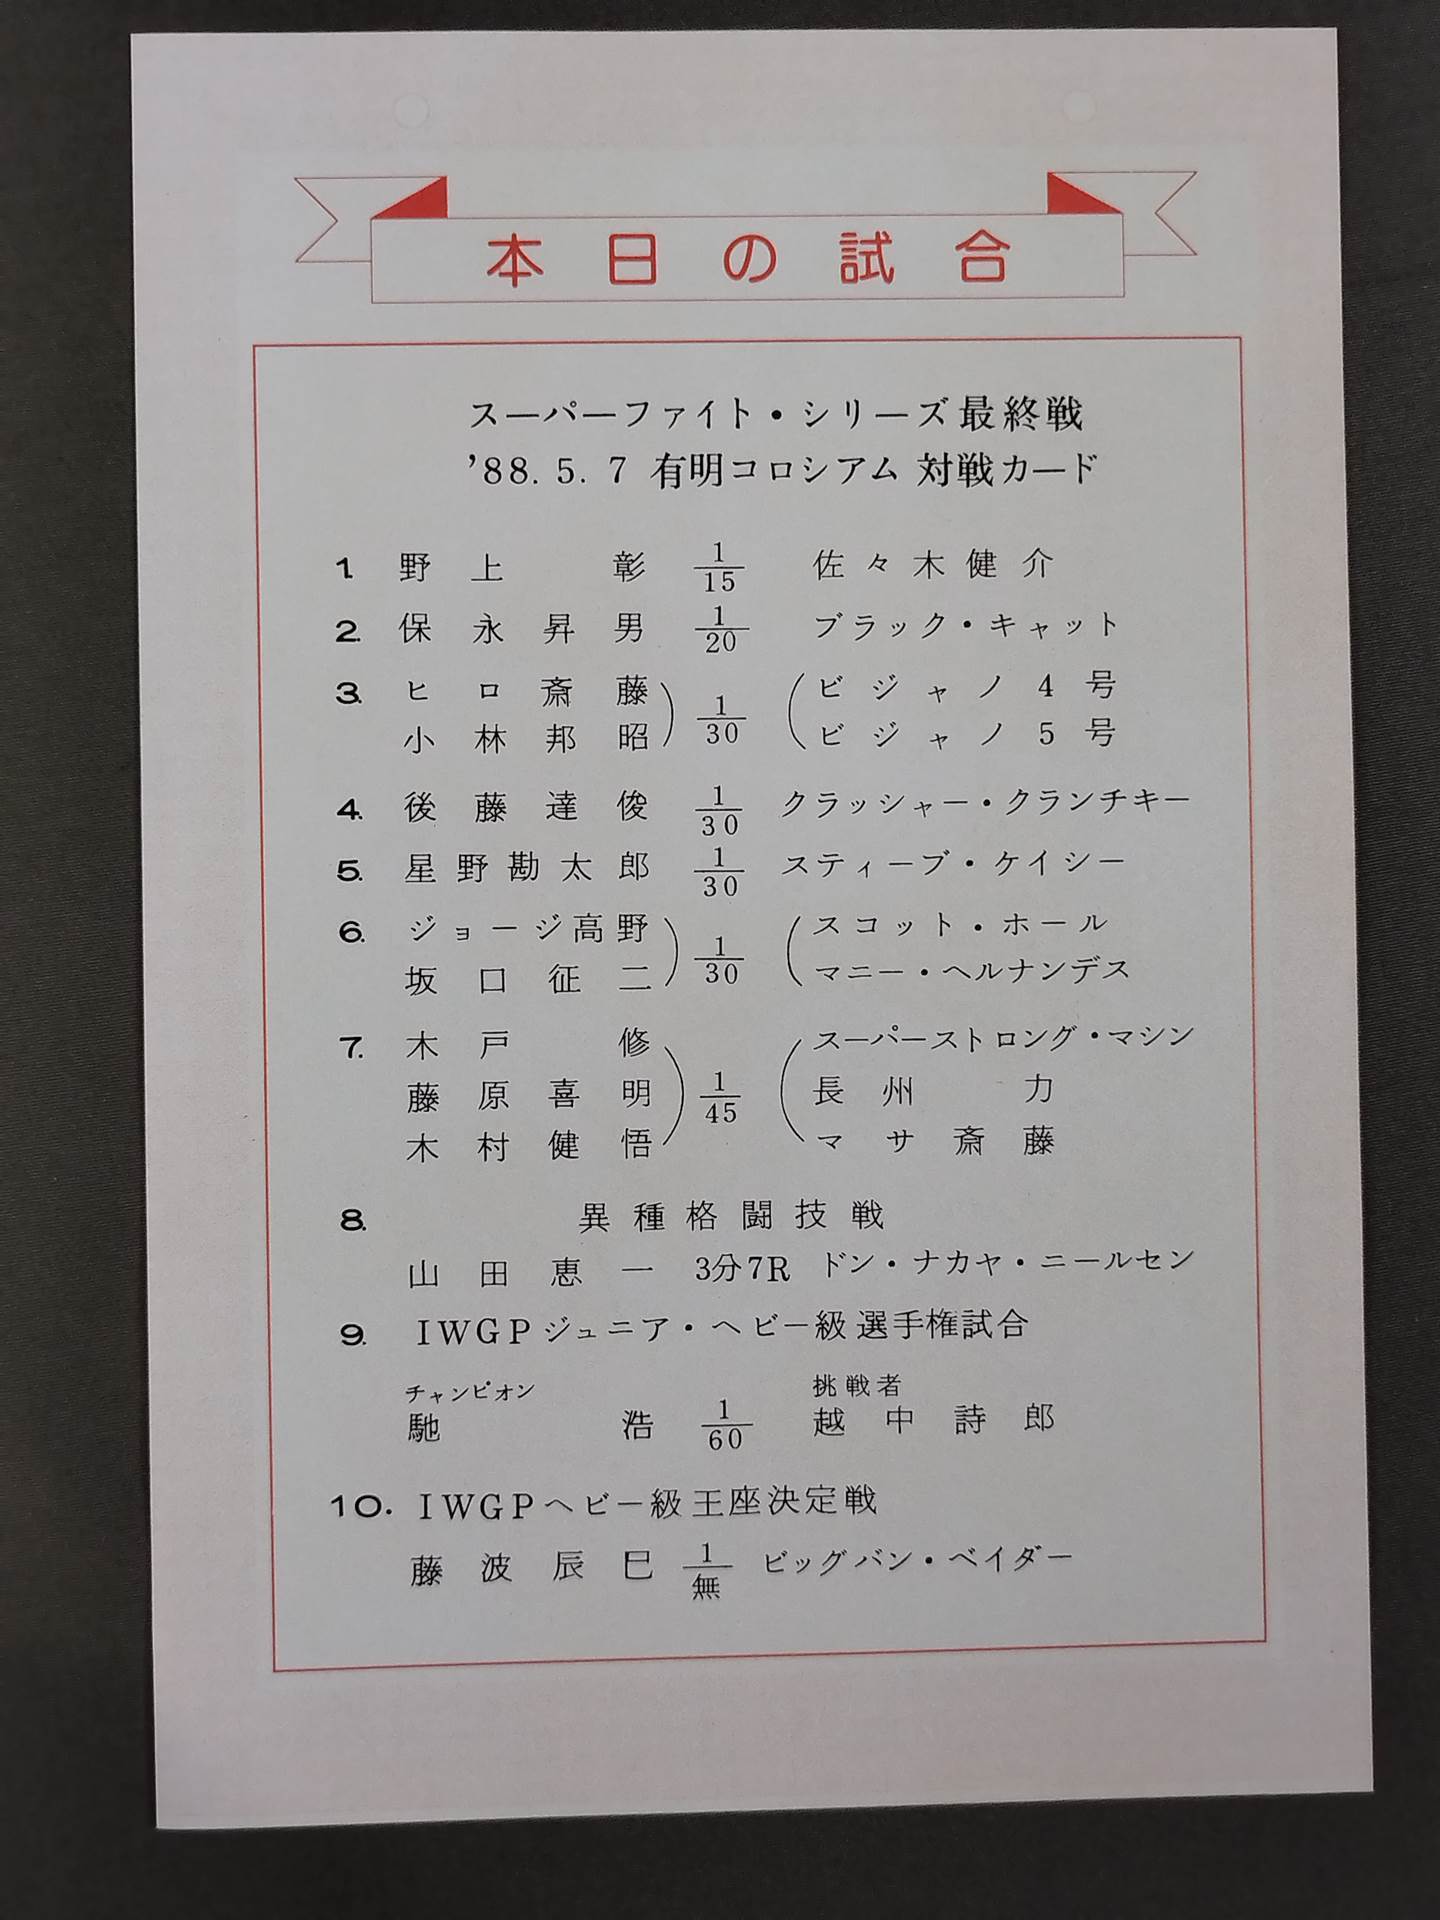 本日の試合
スーパーファイト・シリーズ最終戦
’88.5.7 有明コロシアム 対戦カード
1. 野上 彰 1/15 佐々木健介
2. 保永昇男 1/20 ブラック・キャット
3. ヒロ斎藤 ビジャノ4号
1/30
小林邦昭 ビジャノ5号
4. 後藤達俊 1/30 クラッシャー・クランチキー
5. 星野勘太郎 1/30 スティーブ・ケイシー
6. ジョージ高野 スコット・ホール
1/30
坂口征二 マニー・ヘルナンデス
7. 木戸 修 スーパーストロング・マシン
藤原喜明 1/45 長州 力
木村健悟 マサ斎藤
8. 異種格闘技戦
山田恵一 3分7R ドン・ナカヤ・ニールセン
9. IWGPジュニア・ヘビー級選手権試合
チャンピオン 挑戦者
馳 浩 1/60 越中詩郎
10. IWGPヘビー級王座決定戦
藤波辰巳 1/無 ビッグバン・ベイダー